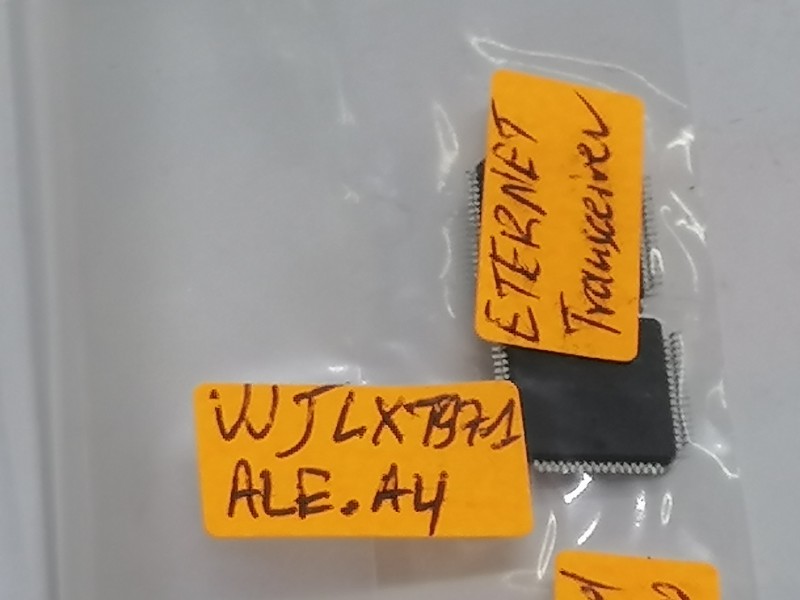 ETERNET
Transceiver
WJLXT971
ALE.A4